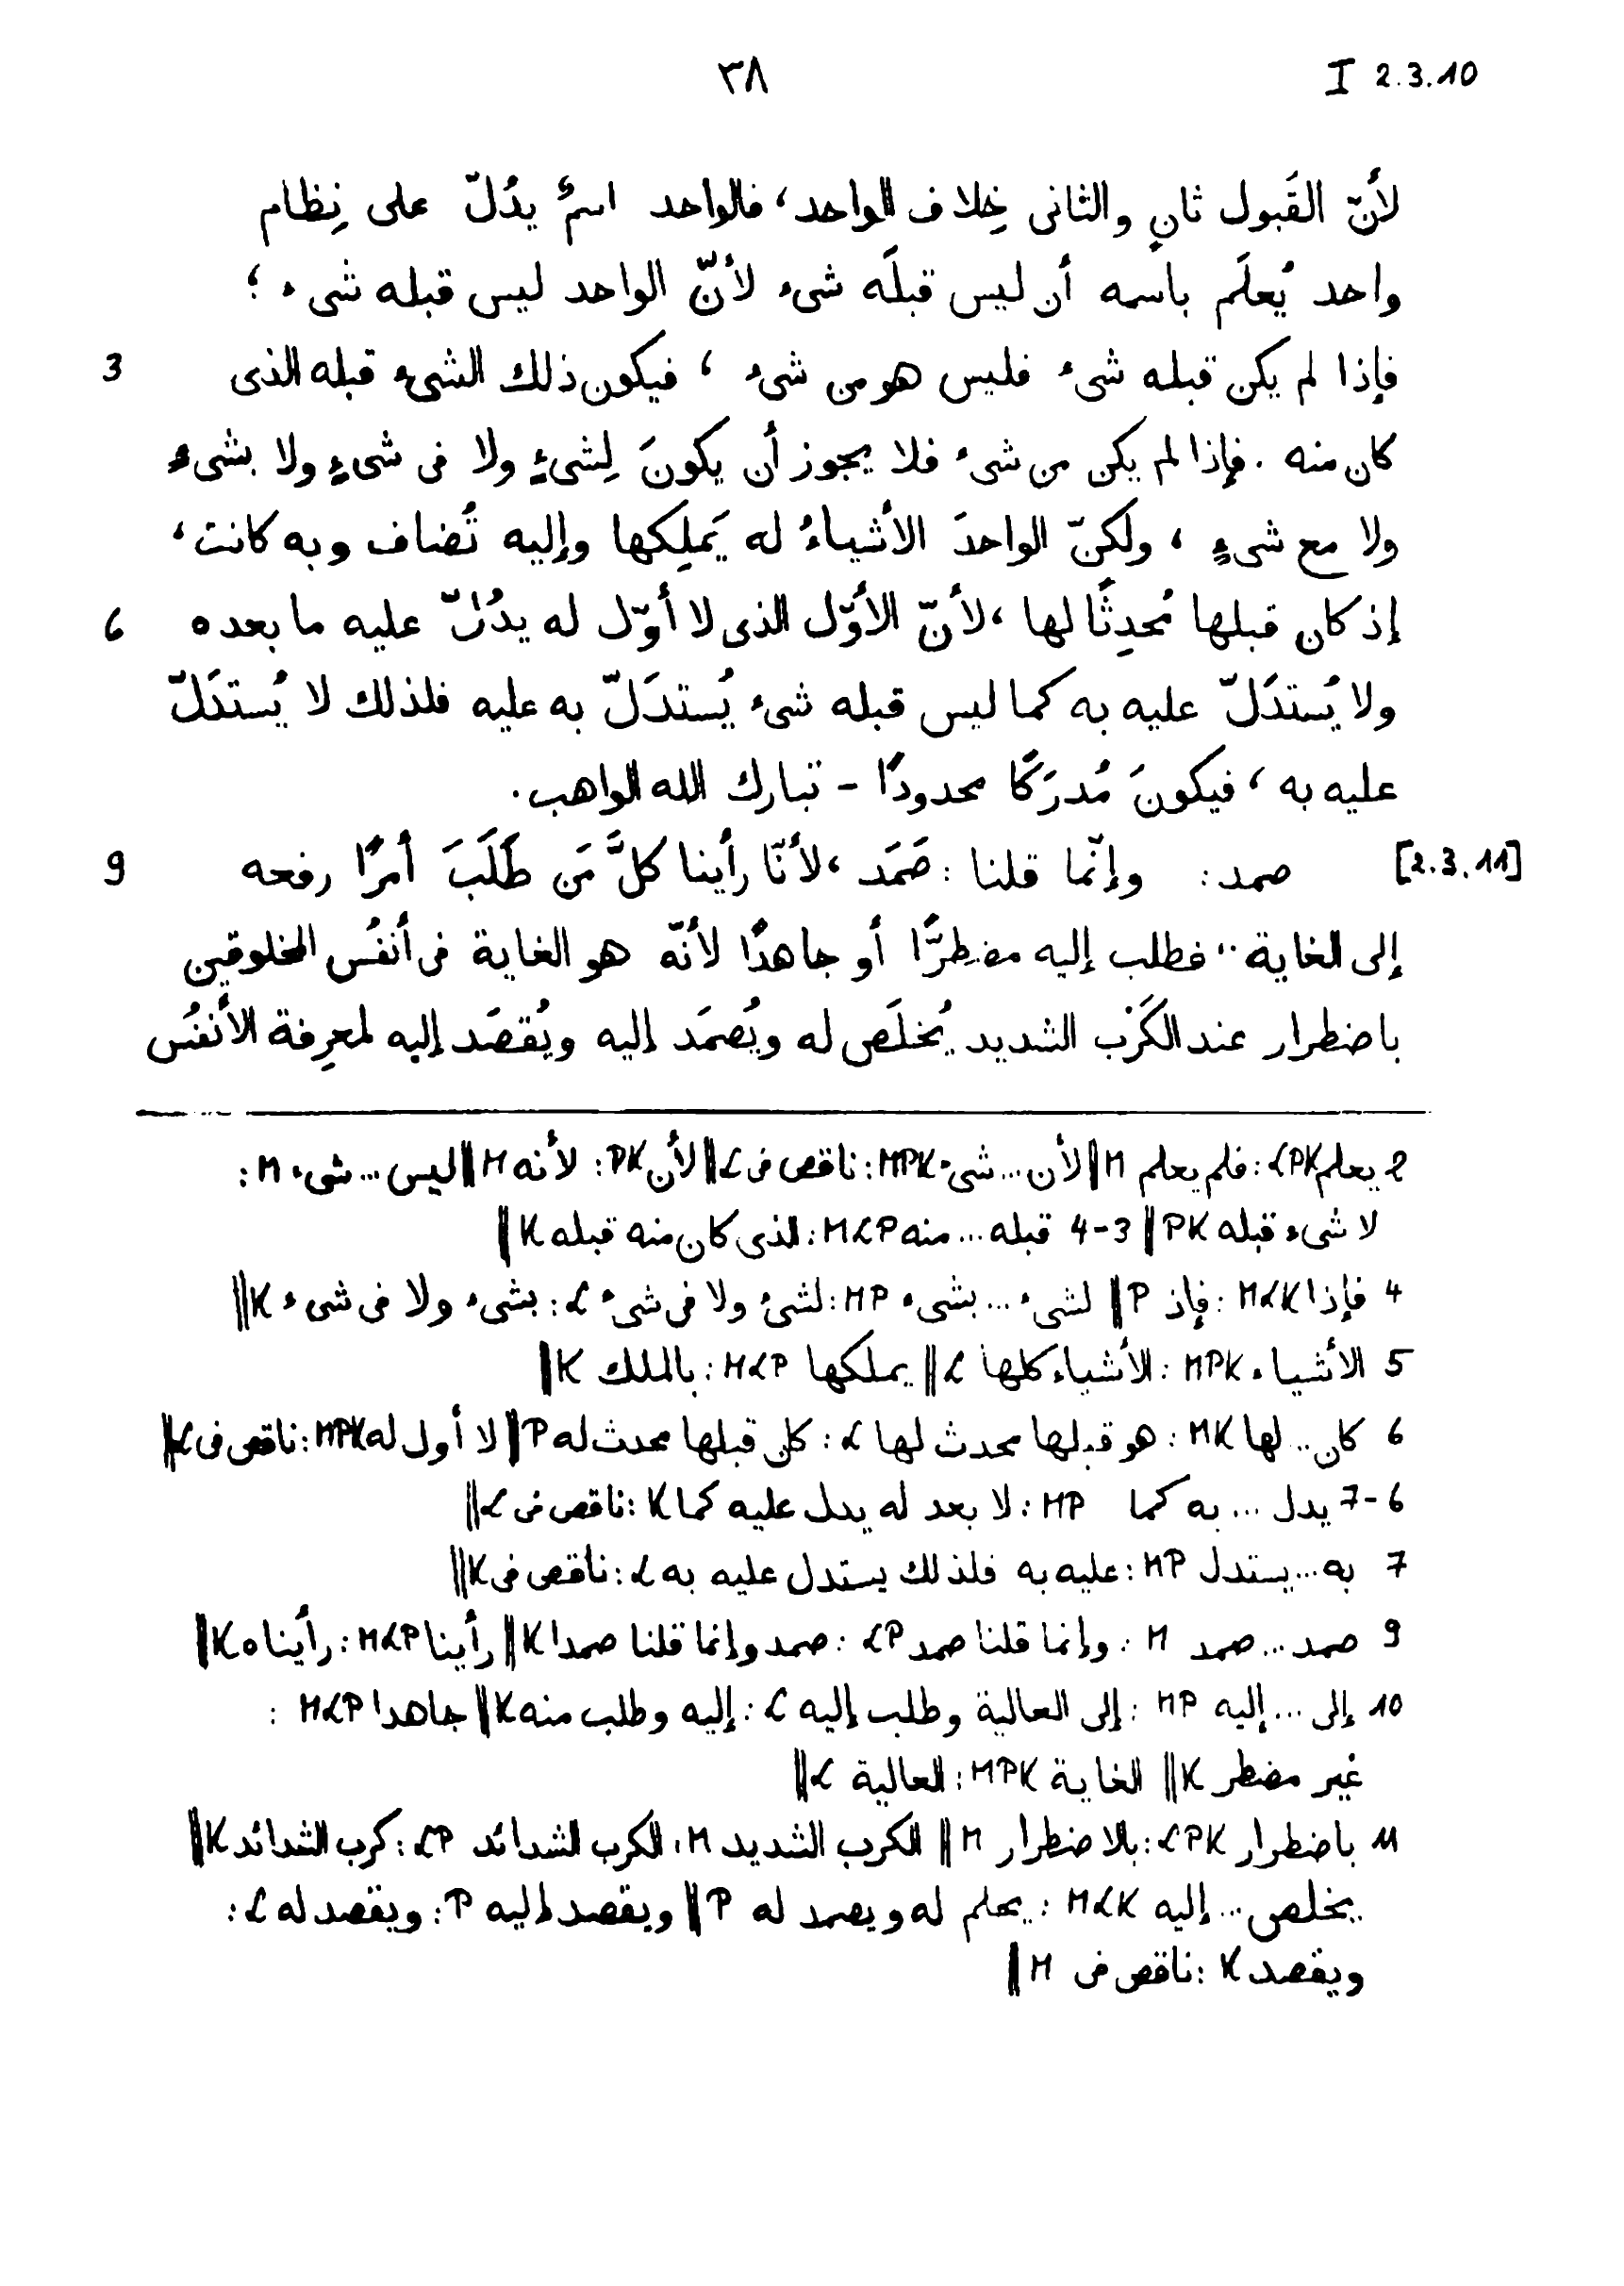 ٣٨ I 2.3.10
لأنّ القَبول ثانٍ والثانى خِلاف الواحد، فالواحد اسمٌ يدُلّ على نِظام
واحد يُعلَم باسمه أن ليس قبلَه شىء لأنّ الواحد ليس قبله شىء؛
3 فإذا لم يكن قبله شىء فليس هو من شىء، فيكون ذلك الشىء قبله الذى
كان منه. فإذا لم يكن من شىء فلا يجوز أن يكونَ لِشىءٍ ولا فى شىءٍ ولا بشىءٍ
ولا مع شىءٍ، ولكنّ الواحدَ الأشياءُ له يَملِكها وإليه تُضاف وبه كانت،
6 إذ كان قبلها مُحدِثًا لها، لأنّ الأوّل الذى لا أوّل له يدُلّ عليه ما بعده
ولا يُستدَلّ عليه به كما ليس قبله شىء يُستدَلّ به عليه فلذلك لا يُستدَلّ
عليه به، فيكونَ مُدرَكًا محدودًا - تبارك الله الواهب.
9 [2.3.11] صمد: وإنّما قلنا: صَمَد، لأنّا رأينا كلَّ مَن طَلَبَ أمرًا رفعه
إلى الغاية.. فطلب إليه مضطِرًّا أو جاهدًا لأنّه هو الغاية فى أنفُس المخلوقين
باضطرار عند الكَرْب الشديد يُخلَص له ويُصمَد إليه ويُقصَد إليه لمعرِفة الأنفُس
2 يعلم LPK: فلم يعلم M || لأن... شىء MPK: ناقص فى L || لأن PK: لأنه M || ليس... شىء M:
لا شىء قبله PK || 3-4 قبله... منه MLP: الذى كان منه قبله K ||
4 فإذا MLK: فإذ P || لشىء... بشىء MP: لشىء ولا فى شىء L: بشىء ولا فى شىء K ||
5 الأشياء MPK: الأشياء كلها L || يملكها MLP: بالملك K ||
6 كان... لها MK: هو قبلها محدث لها L: كل قبلها محدث له P || لا أول له MPK: ناقص فى L ||
6-7 يدل... به كما MP: لا بعد له يدل عليه كما K: ناقص فى L ||
7 به... يستدل MP: عليه به فلذلك يستدل عليه به L: ناقص فى K ||
9 صمد... صمد M: وإنما قلنا صمد LP: صمد وإنما قلنا صمدا K || رأينا MLP: رأيناه K ||
10 إلى... إليه MP: إلى العالية وطلب إليه L: إليه وطلب منه K || جاهدا MLP:
غير مضطر K || الغاية MPK: العالية L ||
11 باضطرار LPK: بالاضطرار M || الكرب الشديد M: الكرب الشدائد LP: كرب الشدائد K ||
يخلص... إليه MLK: يعلم له ويصمد له P || ويقصد إليه P: ويقصد له L:
ويقصد K: ناقص فى M ||